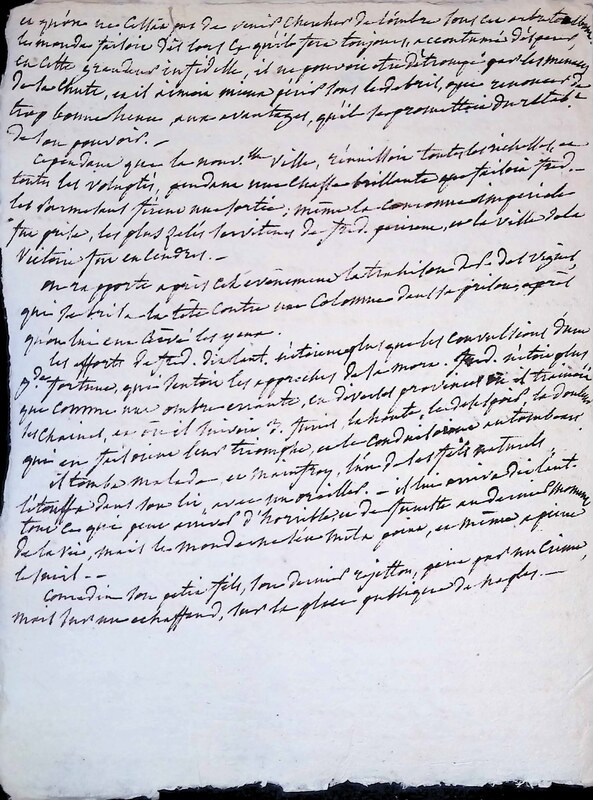 et qu'on ne cessât pas de venir chercher de l'ombre sous cet arbre
le monde faisoit dès lors ce qu'il fera toujours, accoutumé d'espérer
en cette grandeur infidelle, il ne pouvoit être détrompé par les menaces
de la chute, et il aimoit mieux périr sous le debril, que renoncer de
trop bonne heure aux avantages, qu'il se promettoit du rétab.t
de son pouvoir. —
Cependant que la nouv.lle ville, réunissoit toutes les richesses, et
toutes les voluptés, pendant une chasse brillante que faisoit fred. —
les parmesans firent une sortie; même la couronne impériale
fut prise, les plus zelés serviteurs de fred. périrent, et la ville de la
victoire fut en cendres. —
On rapporte après cet événement la trahison de P. des vignes,
qui se brisa la tête contre une colomne dans sa prison, après
qu'on lui eut crévé les yeux.
les efforts de fred. disent, n'étoient plus que les convulsions d'une
g.de fortune, qui sentoit les approches de la mort. fred. n'étoit plus
que comme une ombre errante, en diverses provinces où il trainoit
ses chaines, et où il servoit de la honte, le desespoir, la douleur
qui en faisoient leur triomphe, et le conduisoient au tombeau
il tomba malade, et mainfroy, l'un de ses fils naturels
l'étouffa dans son lit, avec un oreiller. — il lui arriva
tout ce que peut arriver d'horrible, et de funeste au dernier moment
de la vie, mais le monde ne s'en mit à peine, et même a peine
le sçut — —
Conradin son petit fils, son dernier rejetton, périt par un crime,
mais sur un échaffaud, sur la place publique de naples. —